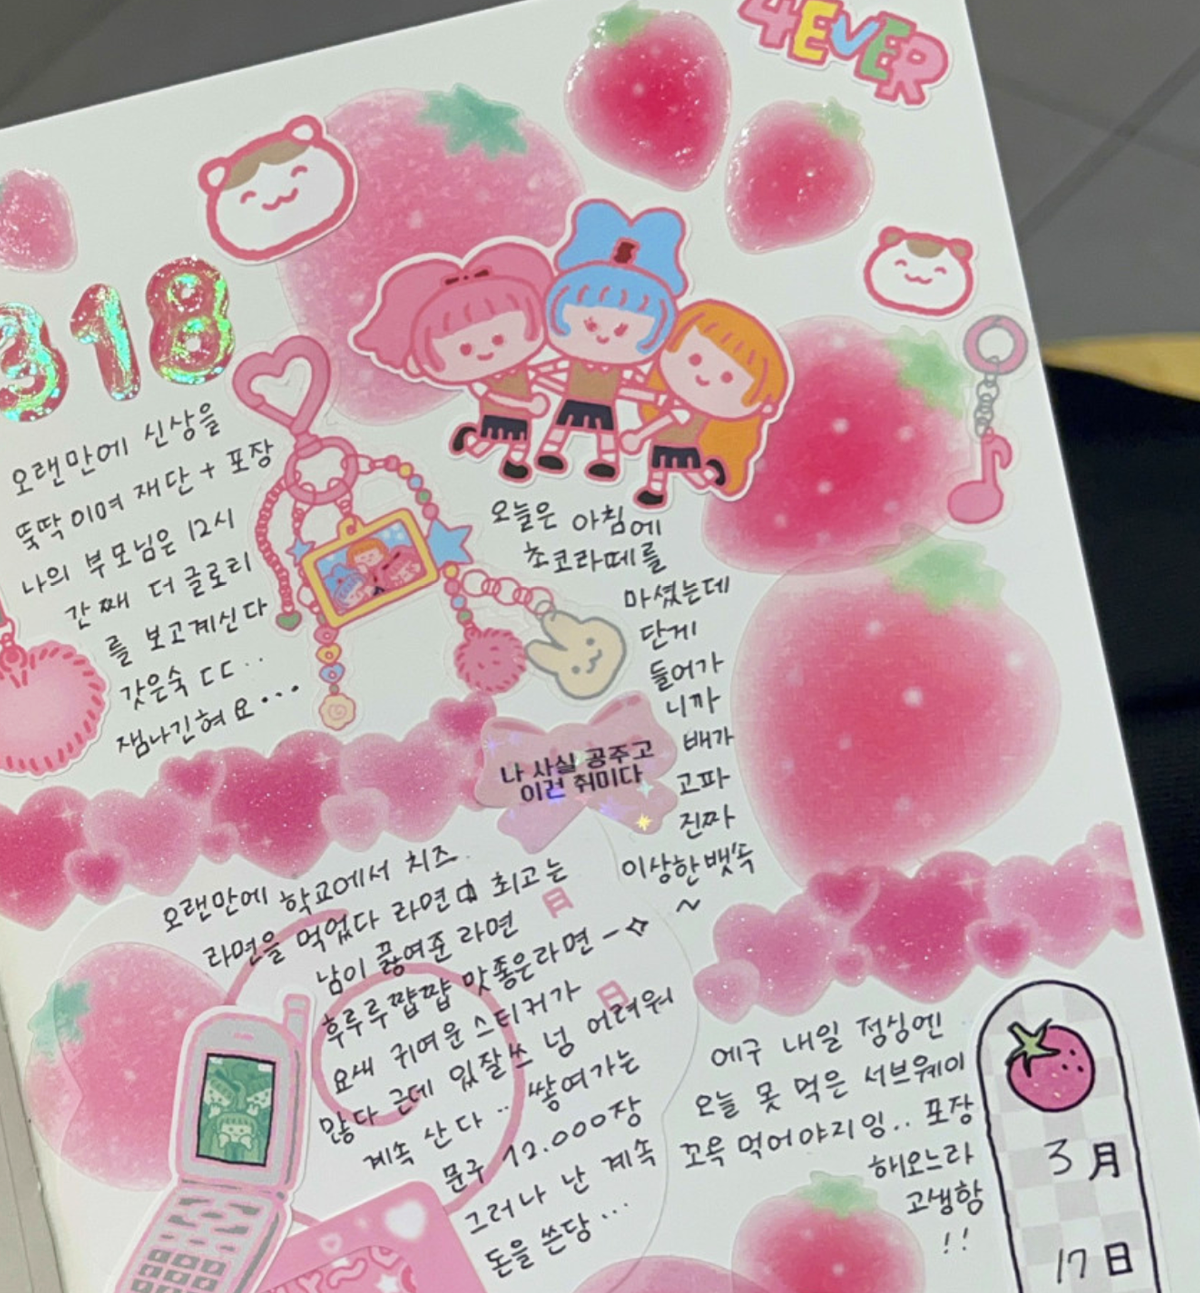 4EVER
318
오랜만에 신상을
뚝딱이며 재단 + 포장
나의 부모님은 12시
간 째 더 글로리
를 보고계신다
갓은숙 ㄷㄷ..
잼나긴혀요...
오늘은 아침에
초코라떼를
마셨는데
단게
들어가
니까
배가
고파
진짜
이상한뱃속
~
나 사실 공주고
이건 취미다
오랜만에 학교에서 치즈
라면을 먹었다 라면 최고는
남이 끓여준 라면
후루루 쨥쨥 맛좋은라면 -
요새 귀여운 스티커가
많다 근데 있잘쓰 넘 어려워
계속 산다.. 쌓여가는
문구 12.000장
그러나 난 계속
돈을 쓴당...
에구 내일 점심엔
오늘 못 먹은 서브웨이
꼬옥 먹어야지잉.. 포장
해오느라
고생함
!!
月
日
3月
17日